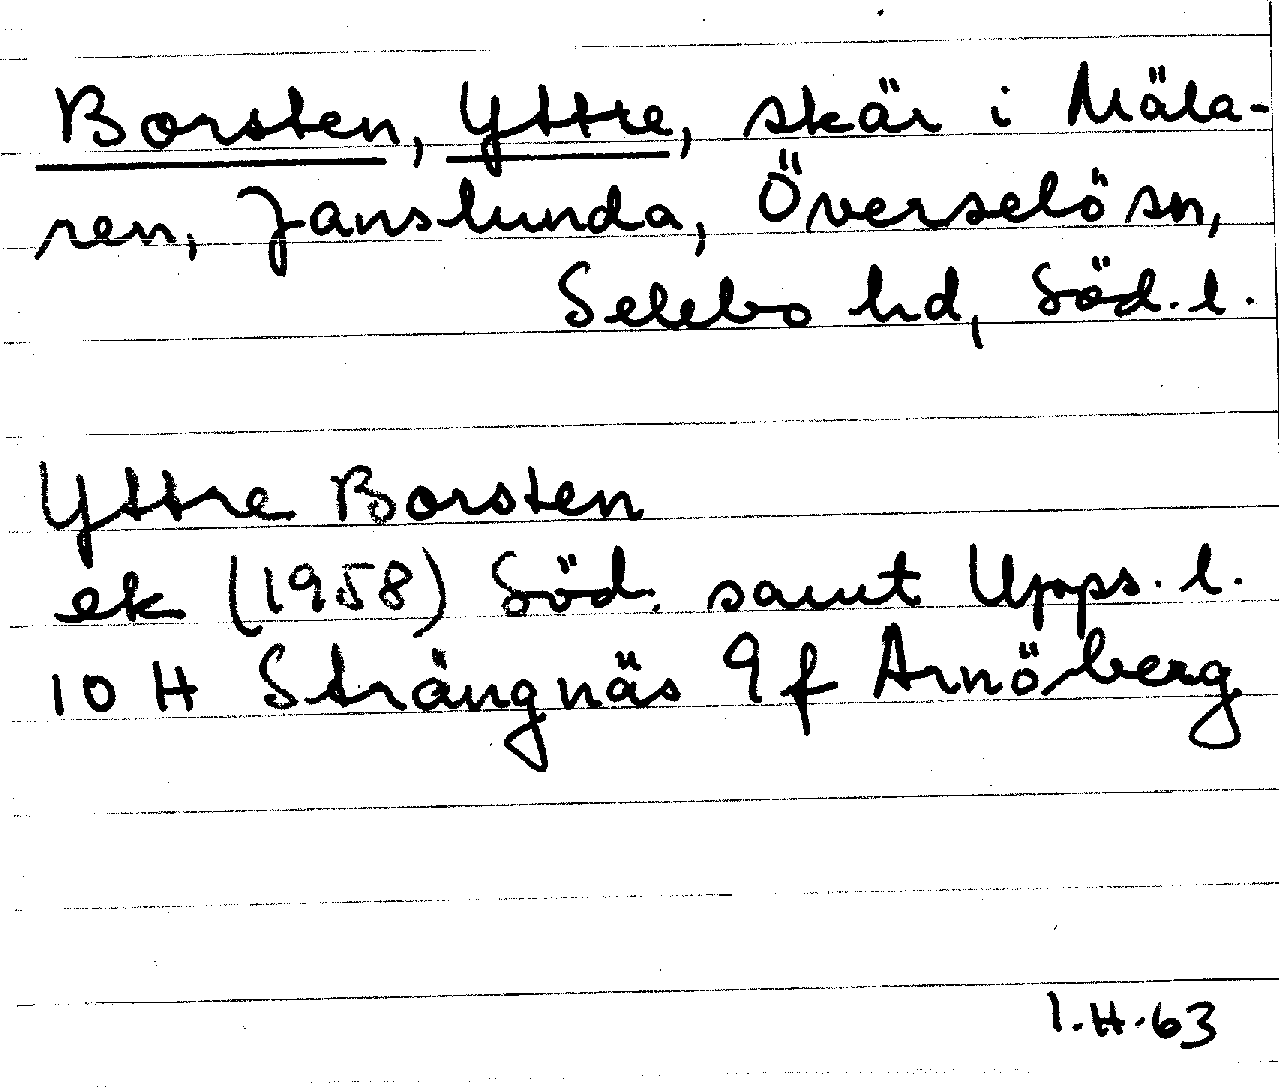 Borsten, Yttre, skär i Mäla-
ren, Janslunda, Överselö sn,
Selebo hd, Söd. l.
Yttre Borsten
ek (1958) Söd. samt Upps. l.
10 H Strängnäs 9f Arnöberg
I.H.63